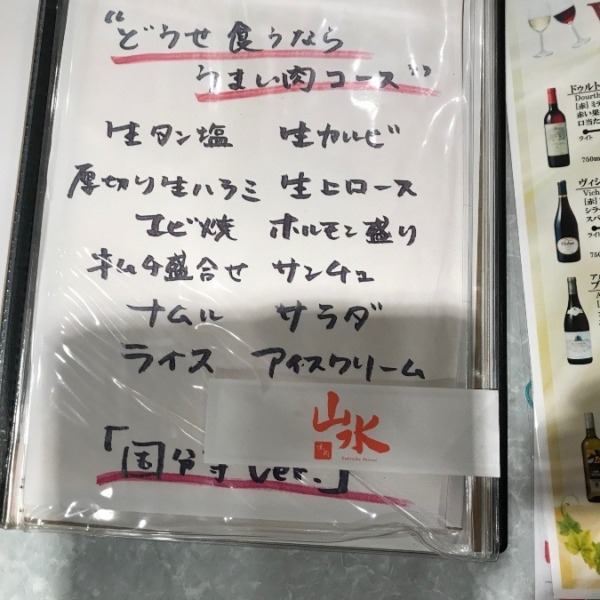 "どうせ食うなら
うまい肉コース"
生タン塩 生カルビ
厚切り生ハラミ 生上ロース
エビ焼 ホルモン盛り
キムチ盛合せ サンチュ
ナムル サラダ
ライス アイスクリーム
山水
「国分寺 ver.」
ドゥルト
Dourth
[赤] ミデ
赤い果
口当た
ライト
750m
ヴィシ
Vich
[赤]
シラ
スパ
ライト
750